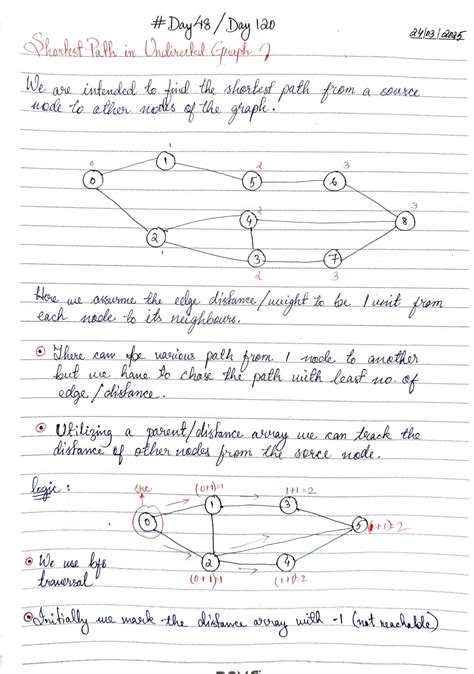 #Day48/Day 120
24/03/2025
Shortest Path in Undirected Graph ?
We are intended to find the shortest path from a source
node to other nodes of the graph.
0 1 2 3
0 1 5 6
2 4 8 3
1 2 3 7
2 3
Here we assume the edge distance/weight to be 1 unit from
each node to its neighbours.
There can be various path from 1 node to another
but we have to chose the path with least no. of
edge/distance.
Utilizing a parent/distance array we can track the
distance of other nodes from the sorce node.
logic : src (0+1)=1 1+1=2
0 1 3
5 1+1)=2
2 4
(0+1)=1 (1+1)=2
We use bfs
traversal
Initially we mark the distance array with -1 (not reachable)